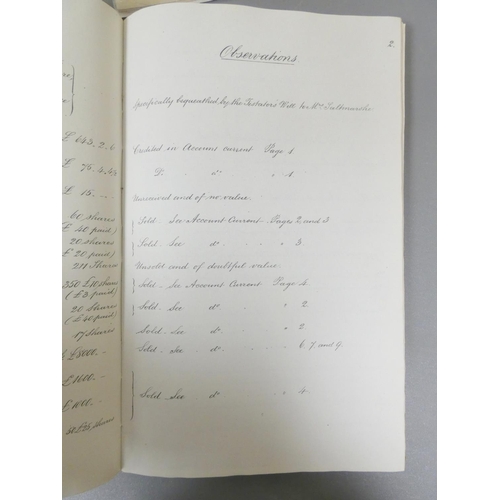 2.
Observations
Specifically bequeathed by the Testators Will to Mrs Saltmarshe
Credited in Account current Page 1
Do " do " 1
Unrealized and of no value.
Sold. See Account Current Pages 2 and 3
Sold. See do " 3
Unsold and of doubtful value.
Sold. See Account Current Page 4
Sold. See do " 2
Sold. See do " 2.
Sold. See do " 6. 7 and 9.
Sold. See do " 4
£ 643. 2. 6
£ 15. -. -
60 shares
£ 40 paid)
20 shares
£ 20 paid)
211 Shares
350 £10 shares
(£3 paid)
20 Shares
(£40 paid)
17 Shares
£8000. -
£1600. -
£1000. -
shares